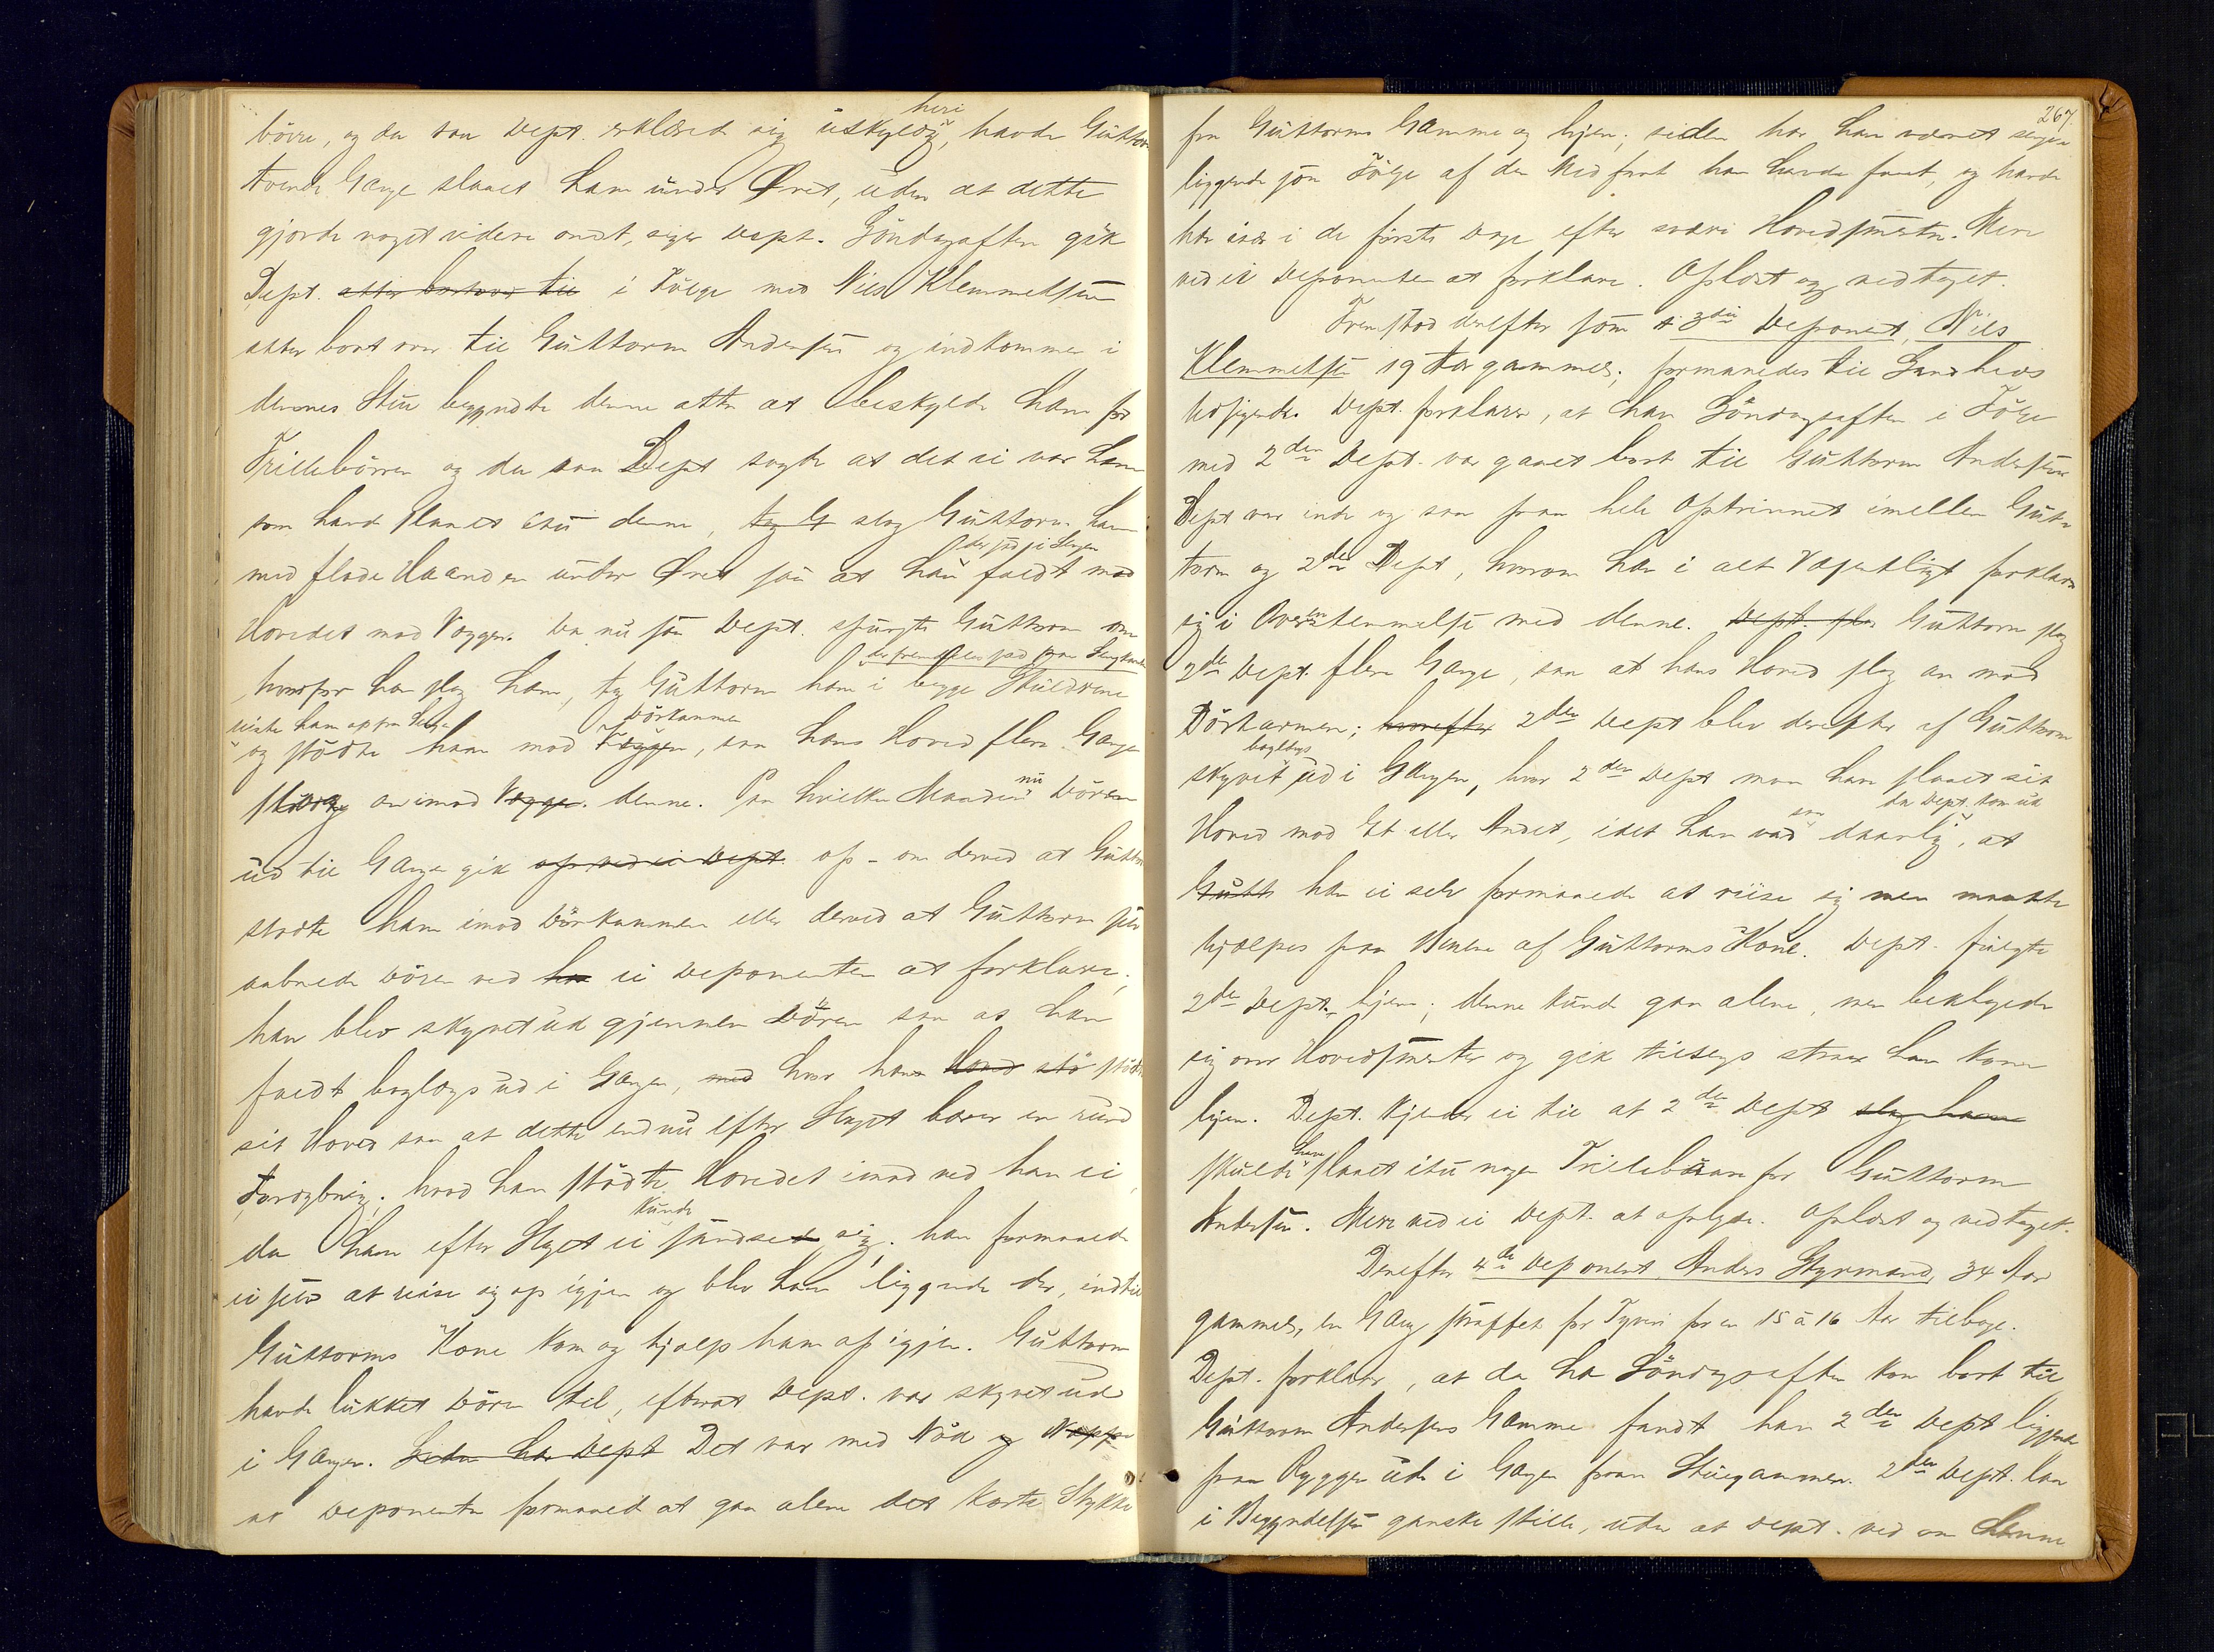 börre, og da saa Dept. erklærede sig heri uskyldig, havde Guttorm
tvende Gange slaaet ham under Øret, uden at dette
gjorde noget videre ondt, siger Dept. Söndagaften gik
Dept. atter bortover til i Fölge med Nils Klemmetsen
atter bort over til Guttorm Andersen og indkommen i
dennes Stue begyndte denne atter at beskylde ham for
Trillebörren og da saa Dept sagde at det ei var ham
som havde slaaet itu denne, tog G slog Guttorm ham
med flade Haanden under Øret saa at han der sad i Sengen faldt mod
Hovedet mod Væggen. Da nu saa Dept. spurgte Guttorm om
hvorfor han slog ham, tog Guttorm ham der fremdeles sad paa Sengkanten i begge Skuldrene
reiste ham op fra Sengen
og stödte ham mod Væggen Dörkammen, saa hans Hoved flere Gange
slog an imod Væggen denne. Paa hvilken Maade nu Dören
ud til Gangen gik op ved ei Dept. op - om derved at Guttorm
stödte ham imod Dörkammen eller derved at Guttorm selv
aabnede Dören ved han ei Deponenten at forklare;
han blev skyvet ud gjennem Dören saa at han
faldt baglængs ud i Gangen, med hvor han Hoved stö stödte
sit Hoved saa at dette endnu efter Slaget bærer en rund
Fordybning; hvad han stödte Hovedet imod ved han ei,
da han efter Slaget ei kunde sandsed sig; han formaaede
ei selv at reise sig op igjen og blev han liggende der, indtil
Guttorms Kone kom og hjalp ham op igjen. Guttorm
havde lukket Dören til, efterat Dept. var skyvet ud
i Gangen. Siden har Dept Det var med Nöd og Neppe
at Deponenten formaaed at gaa alene det korte Stykke
267.
fra Guttorms Gamme og hjem; siden har han været senge-
liggende som Fölge af den Medfart han havde faaet, og havde
han især i de förste Dage efter svære Hovedsmerter. Mere
ved ei Deponenten at forklare. Oplæst og vedtaget.
Fremstod derefter som 3die Deponent, Nils
Klemmetsen 19 Aar gammel; formanedes til Sandheds
Udsigende. Dept. forklarer, at han Söndagsaften i Fölge
med 2den Dept. var gaaet bort til Guttorm Andersen
Dept var inde og saa paa hele Optrinnet imellem Gut-
torm og 2den Dept, hvorom han i alt Væsentligt forklarer
sig i Overensstemmelse med denne. Dept. slog Guttorm slog
2den Dept. flere Gange, saa at hans Hoved slog an mod
Dörkarmen; hvorefter 2den Dept blev derefter af Guttorm
skyvet baglængs ud i Gangen, hvor 2den Dept maa have slaaet sit
Hoved mod Et eller Andet, idet han var saa daarlig, da Dept. kom ud at
Gutt han ei selv formaaede at reise sig men maatte
hjælpes paa Benene af Guttorms Kone. Dept. fulgte
2den Dept. hjem; denne kunde gaa alene, men beklagede
sig over Hovedsmerter og gik tilsengs strax han kom
hjem. Dept. kjender ei til at 2den Dept slog ham
skulde have slaaet itu nogen Trillebörre for Guttorm
Andersen. Mere ved ei Dept. at oplyse. Oplæst og vedtaget.
Derefter 4de Deponent Anders Styrmand, 34 Aar
gammel, en Gang straffet for Tyveri for en 15 à 16 Aar tilbage.
Dept. forklarer, at da han Söndagsaften kom bort til
Guttorm Andersens Gamme fandt han 2den Dept liggende
paa Ryggen ude i Gangen foran Stuegammen. 2den Dept. laa
i Begyndelsen ganske stille, uden at Dept. ved om denne